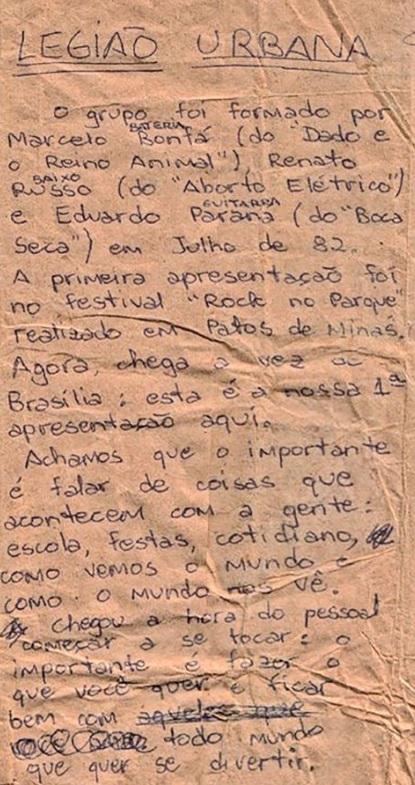 LEGIÃO URBANA
O grupo foi formado por
BATERIA
Marcelo Bonfá (do "Dado e
o Reino Animal"), Renato
BAIXO
Russo (do "Aborto Elétrico")
GUITARRA
e Eduardo Paraná (do "Boca
Seca") em Julho de 82.
A primeira apresentação foi
no festival "Rock no Parque"
realizado em Patos de Minas.
Agora, chega a vez de
Brasília: esta é a nossa 1ª
apresentação aqui.
Achamos que o importante
é falar de coisas que
acontecem com a gente:
escola, festas, cotidiano,
como vemos o mundo e
como o mundo nos vê.
Chegou a hora do pessoal
começar a se tocar: o
importante é fazer o
que você quer e ficar
bem com aqueles que
você todo mundo
que quer se divertir.